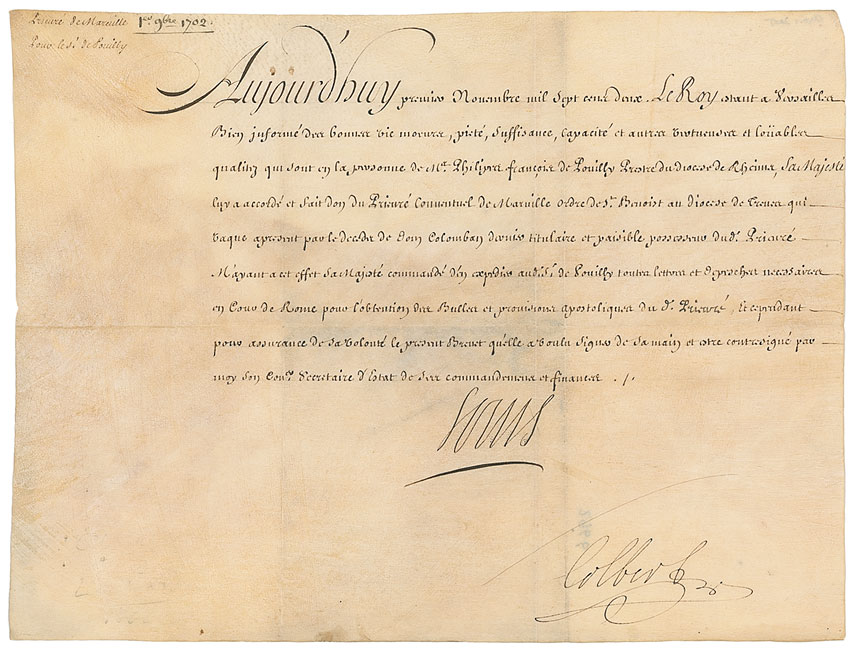 Prieuré de Marville 1er 9bre 1702.
Pour le Sr. de Pouilly
Aujourd'huy premier Novembre mil Sept cent deux. Le Roy estant a Versailles
Bien informé des bonnes vie moeurs, pieté, suffisance, capacité et autres vertueuses et loüables
qualitez qui sont en la personne de Me. Philippe françois de Pouilly Prestre du diocese de Rheims, Sa Majesté
luy a accordé et fait don du Prieuré Conventuel de Marville ordre de St. Benoist au Diocese de Treves qui
vaque apresent par le decès de dom Colomban dernier titulaire et paisible possesseur dud. Prieuré
M'ayant a cet effet Sa Majesté commandé d'en expedier aud. Sr. de Pouilly toutes lettres et depesches necessaires
en Cour de Rome pour l'obtention des Bulles et provisions apostoliques du d. Prieuré, Et cependant
pour assurance de sa volonté le present Brevet qu'elle a voulu signer de sa main et estre contresigné par
moy son Conr. Secretaire d'Estat de ses commandemens et finances ./.
Louis
Colbert